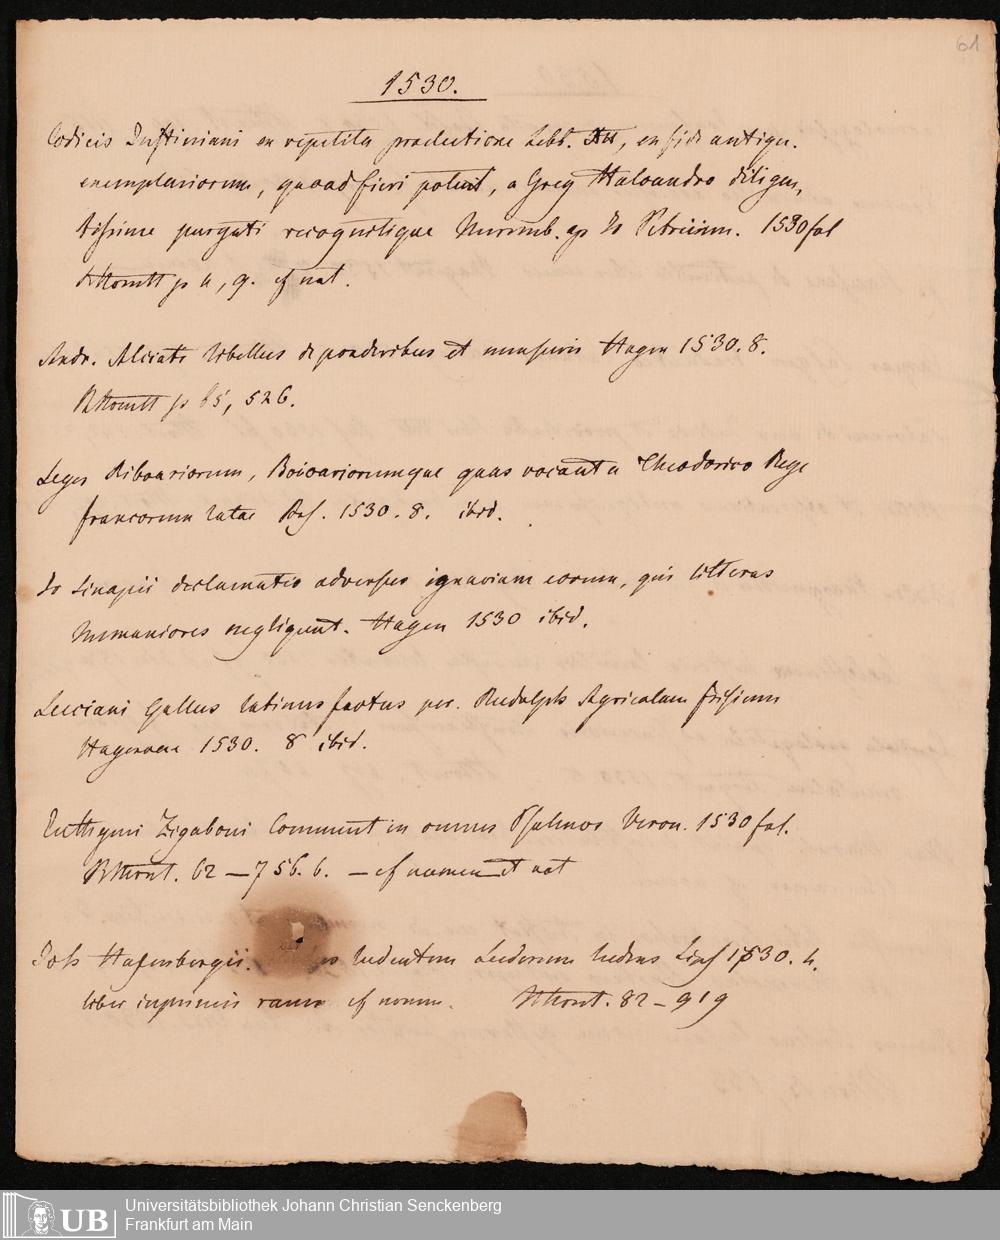 61
1530.
Codicis Justiniani ex repetita praelectione Libb. XII, ex fide antiqu.
exemplariorum, quoad fieri potuit, a Greg Haloandro diligen,
tissime purgati recognitique Nuremb. ap Jo Petrium. 1530 fol
p 4, 9. cf not.
Andr. Alciati libellus de ponderibus et mensuris Hagen 1530. 8.
p 65, 526.
Leges Ribuariorum, Boioariorumque quas vocant a Theodorico Rege
francorum latae Bas. 1530. 8. ibid.
Jo Sinapii declamatio adversus ignaviam eorum, qui litteras
humaniores negligunt. Hagen 1530 ibid.
Luciani Gallus latinus factus per. Rudolph Agricolam frisium
Hagenoae 1530. 8 ibid.
Euthymii Zigaboni Comment in omnes Psalmos Veron. 1530 fol.
62 — 756. 6. — cf nomen et not
Joh Hasenbergii. ludentem Luderum ludus Lips 1530. 4.
liber inprimis rarus cf nomen. 82 — 919
Universitätsbibliothek Johann Christian Senckenberg
Frankfurt am Main
UB